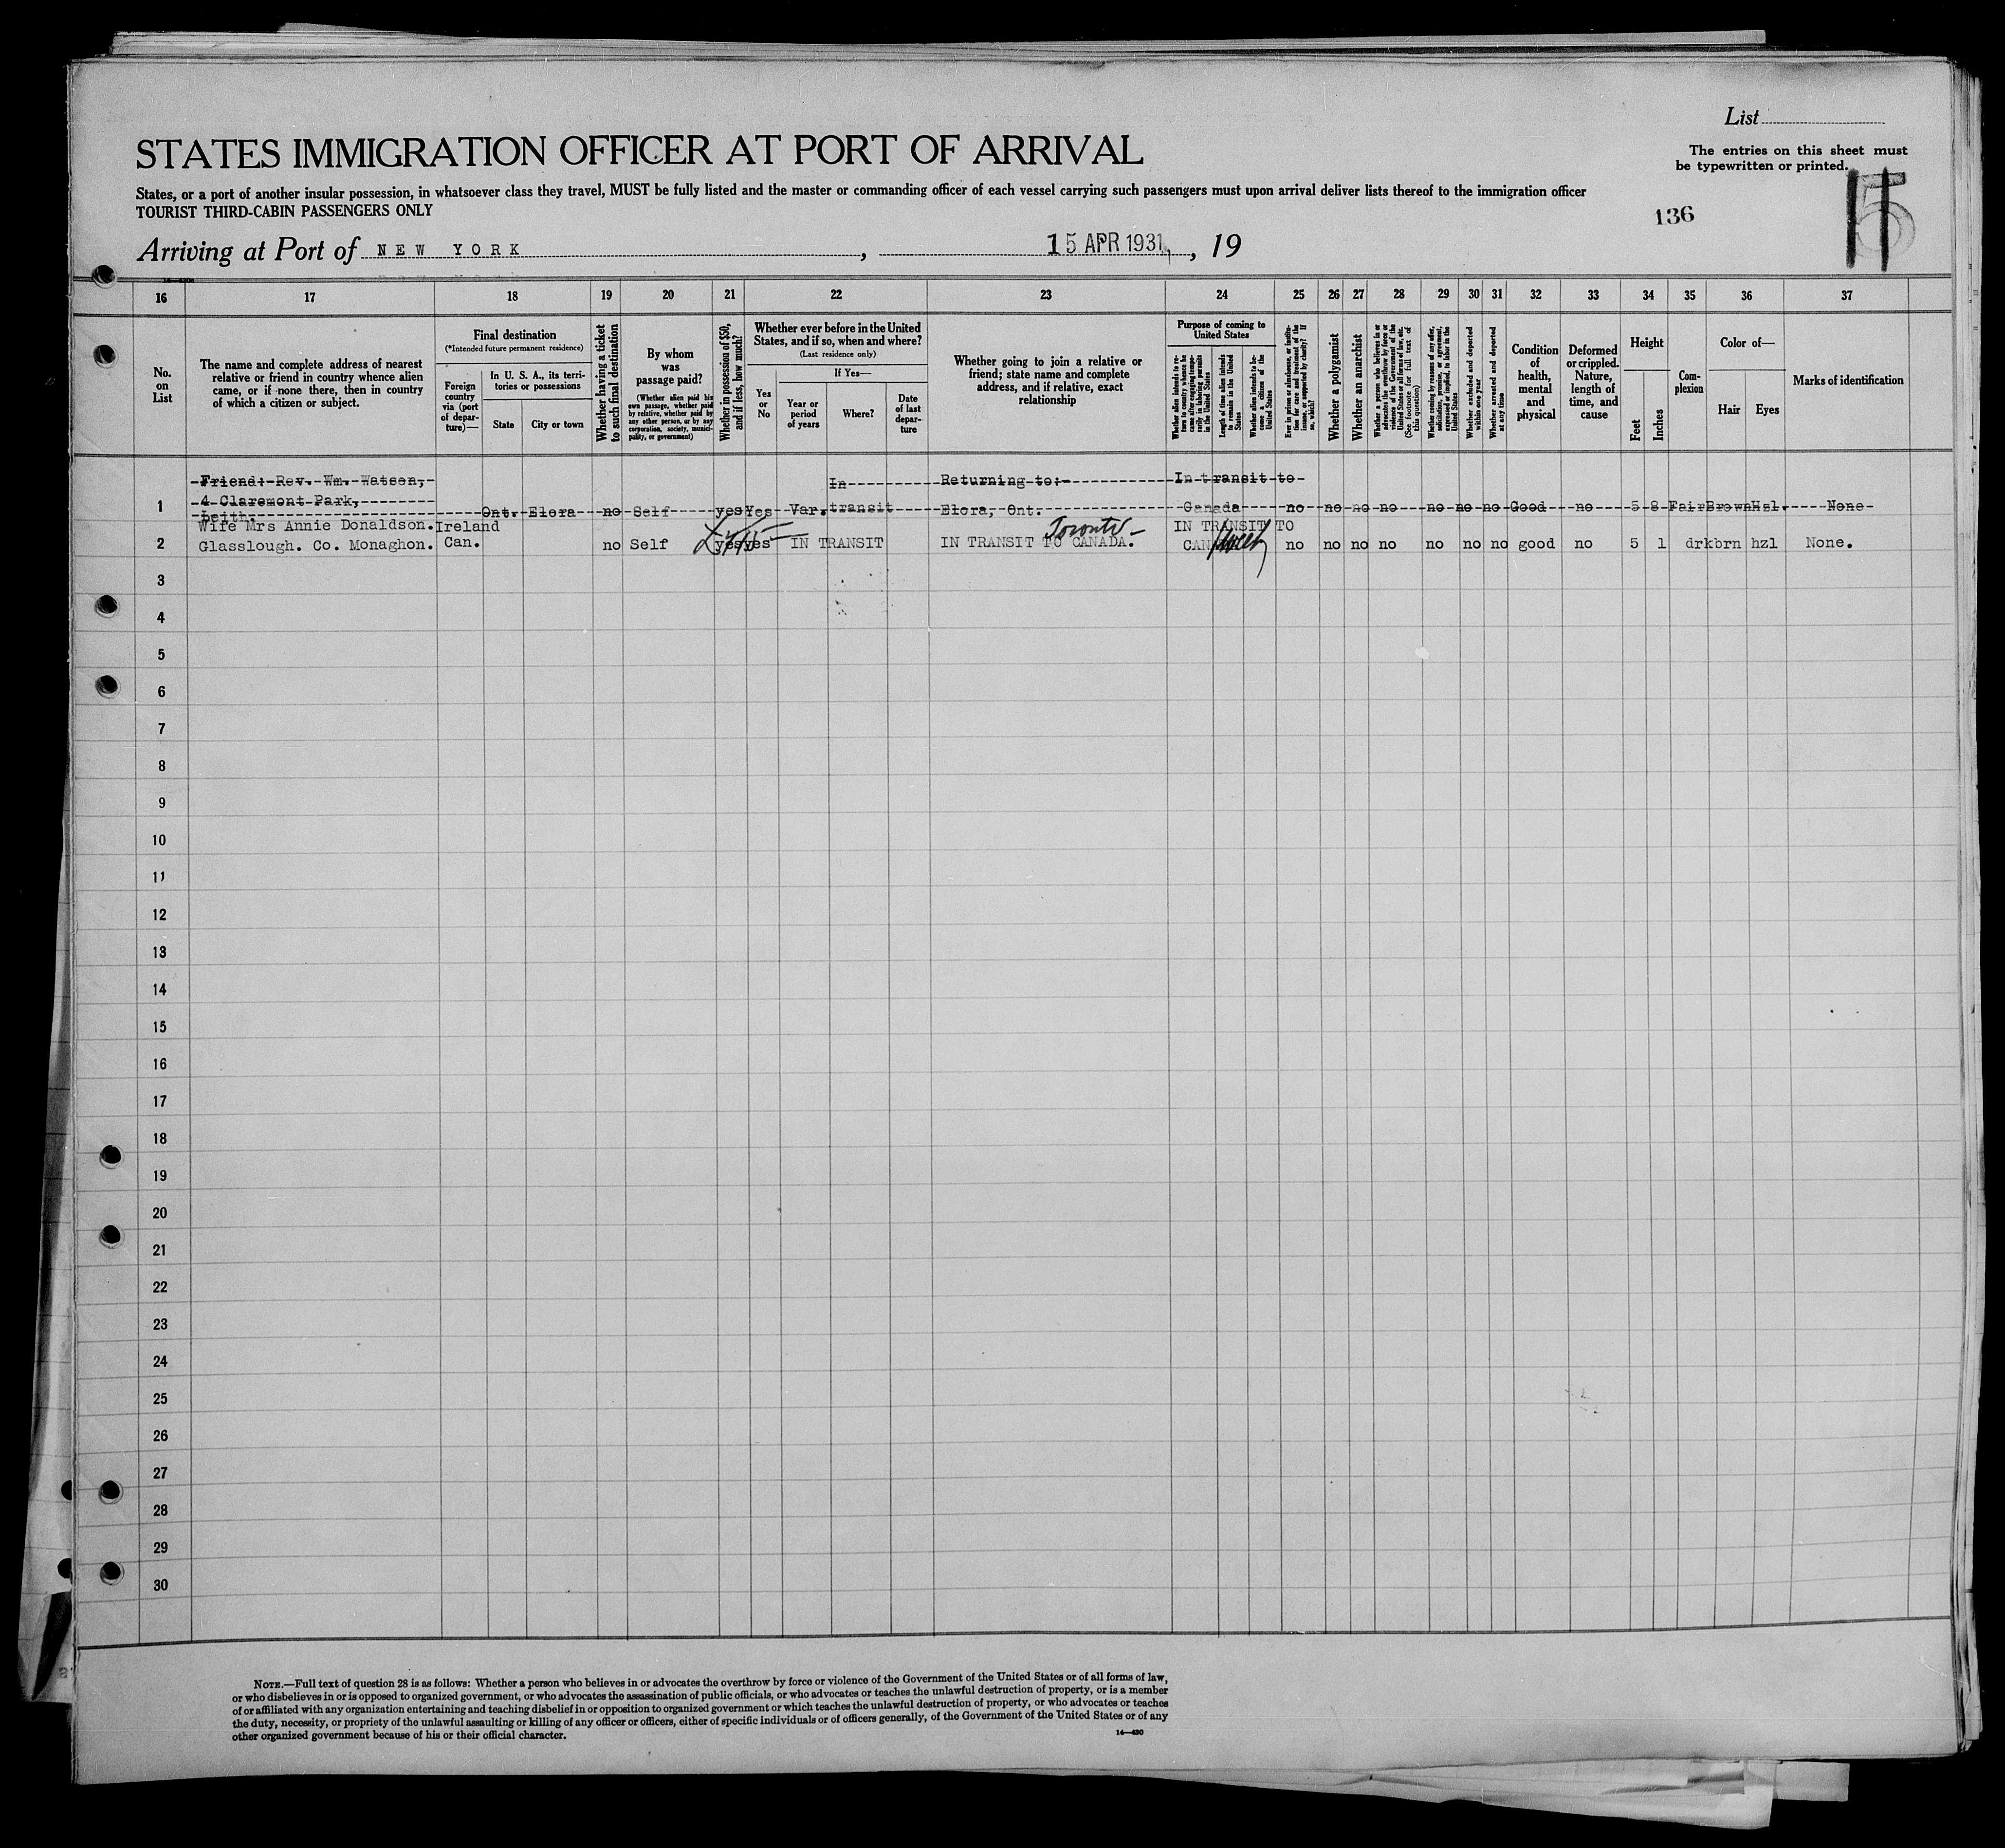 List
STATES IMMIGRATION OFFICER AT PORT OF ARRIVAL
The entries on this sheet must
be typewritten or printed.
States, or a port of another insular possession, in whatsoever class they travel, MUST be fully listed and the master or commanding officer of each vessel carrying such passengers must upon arrival deliver lists thereof to the immigration officer
TOURIST THIRD-CABIN PASSENGERS ONLY
136
5
Arriving at Port of NEW YORK, 15 APR 1931, 19
16 17 18 19 20 21 22 23 24 25 26 27 28 29 30 31 32 33 34 35 36 37
No. on List
The name and complete address of nearest
relative or friend in country whence alien
came, or if none there, then in country
of which a citizen or subject.
Final destination
(*Intended future permanent residence)
Foreign country via (port of departure)—
In U. S. A., its territories or possessions
State
City or town
Whether having a ticket to such final destination
By whom was passage paid?
(Whether alien paid his own passage, whether paid by relative, whether paid by any other person, or by any corporation, society, municipality, or government)
Whether in possession of $50, and if less, how much?
Whether ever before in the United
States, and if so, when and where?
(Last residence only)
Yes or No
If Yes—
Year or period of years
Where?
Date of last departure
Whether going to join a relative or
friend; state name and complete
address, and if relative, exact
relationship
Purpose of coming to United States
Whether alien intends to return to country whence he came after engaging temporarily in laboring pursuits in the United States
Length of time alien intends to remain in the United States
Whether alien intends to become a citizen of the United States
Ever in prison or almshouse, or institution for care and treatment of the insane, or supported by charity? If so, which?
Whether a polygamist
Whether an anarchist
Whether a person who believes in or advocates the overthrow by force or violence of the Government of the United States or all forms of law, etc. (See footnote for full text of this question)
Whether coming by reason of any offer, solicitation, promise, or agreement, expressed or implied, to labor in the United States
Whether excluded and deported within one year
Whether arrested and deported at any time
Condition of health, mental and physical
Deformed or crippled. Nature, length of time, and cause
Height
Feet
Inches
Complexion
Color of—
Hair
Eyes
Marks of identification
1 Friend: Rev. Wm. Watson,
4 Claremont Park,
Leith. Ont. Elora no Self yes Yes Var. In transit Returning to: Elora, Ont. In transit to Canada no no no no no no no Good no 5 8 Fair Brown Hzl. None
2 Wife Mrs Annie Donaldson. Ireland
Glasslough. Co. Monaghon. Can. no Self yes yes IN TRANSIT IN TRANSIT TO CANADA. Toronto IN TRANSIT TO no no no no no no no good no 5 1 drk brn hzl None.
3
4
5
6
7
8
9
10
11
12
13
14
15
16
17
18
19
20
21
22
23
24
25
26
27
28
29
30
NOTE.—Full text of question 28 is as follows: Whether a person who believes in or advocates the overthrow by force or violence of the Government of the United States or of all forms of law,
or who disbelieves in or is opposed to organized government, or who advocates the assassination of public officials, or who advocates or teaches the unlawful destruction of property, or is a member
of or affiliated with any organization entertaining and teaching disbelief in or opposition to organized government or which teaches the unlawful destruction of property, or who advocates or teaches
the duty, necessity, or propriety of the unlawful assaulting or killing of any officer or officers, either of specific individuals or of officers generally, of the Government of the United States or of any
other organized government because of his or their official character.
14—430